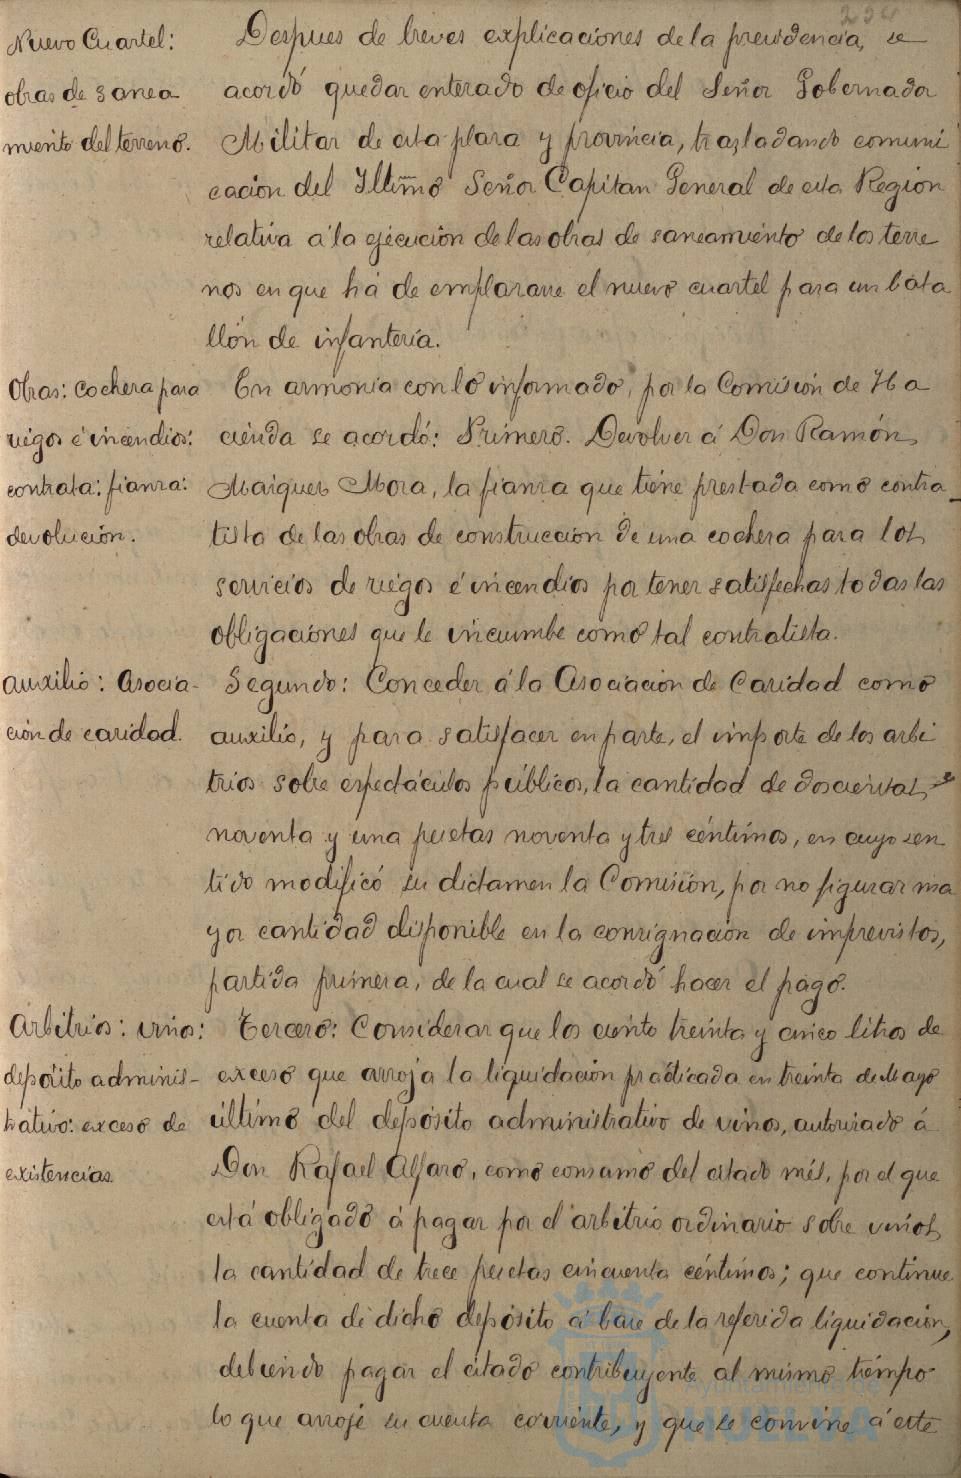 234
Nuevo Cuartel:
obras de sanea
miento del terreno.
Despues de breves explicaciones de la presidencia, se
acordó quedar enterado de oficio del Señor Gobernador
Militar de esta plaza y provincia, trasladando comuni
cación del Iltmo Señor Capitan General de esta Region
relativa á la ejecución de las obras de saneamiento de los terre
nos en que há de emplazarse el nuevo cuartel para un bata
llón de infantería.
Obras: cochera para
riegos é incendios:
contrata: fianza:
devolución.
En armonía con lo informado, por la Comisión de Ha
cienda se acordó: Primero. Devolver á Don Ramón
Maiquez Mora, la fianza que tiene prestada como contra-
tista de las obras de construcción de una cochera para los
servicios de riegos é incendios por tener satisfechas todas las
obligaciones que le incumbe como tal contratista.
Auxilio: Asocia-
ción de caridad.
Segundo: Conceder á la Asociación de Caridad como
auxilio, y para satisfacer en parte, el importe de los arbi
trios sobre espectáculos públicos, la cantidad de doscientas
noventa y una pesetas noventa y tres céntimos, en cuyo sen
tido modificó su dictamen la Comisión, por no figurar ma
yor cantidad disponible en la consignación de imprevistos,
partida primera, de la cual se acordó hacer el pago.
Arbitrios: vinos:
depósito adminis-
trativo: exceso de
existencias
Tercero: Considerar que los ciento treinta y cinco litros de
exceso que arroja la liquidación practicada en treinta de Mayo
último del depósito administrativo de vinos, autorizado á
Don Rafael Alfaro, como consumo del citado mes, por el que
está obligado á pagar por el arbitrio ordinario sobre vinos
la cantidad de trece pesetas cincuenta céntimos; que continue
la cuenta de dicho depósito á base de la referida liquidación,
debiendo pagar el citado contribuyente al mismo tiempo
lo que arroje su cuenta corriente, y que se convine á este
Ayuntamiento de
HUELVA